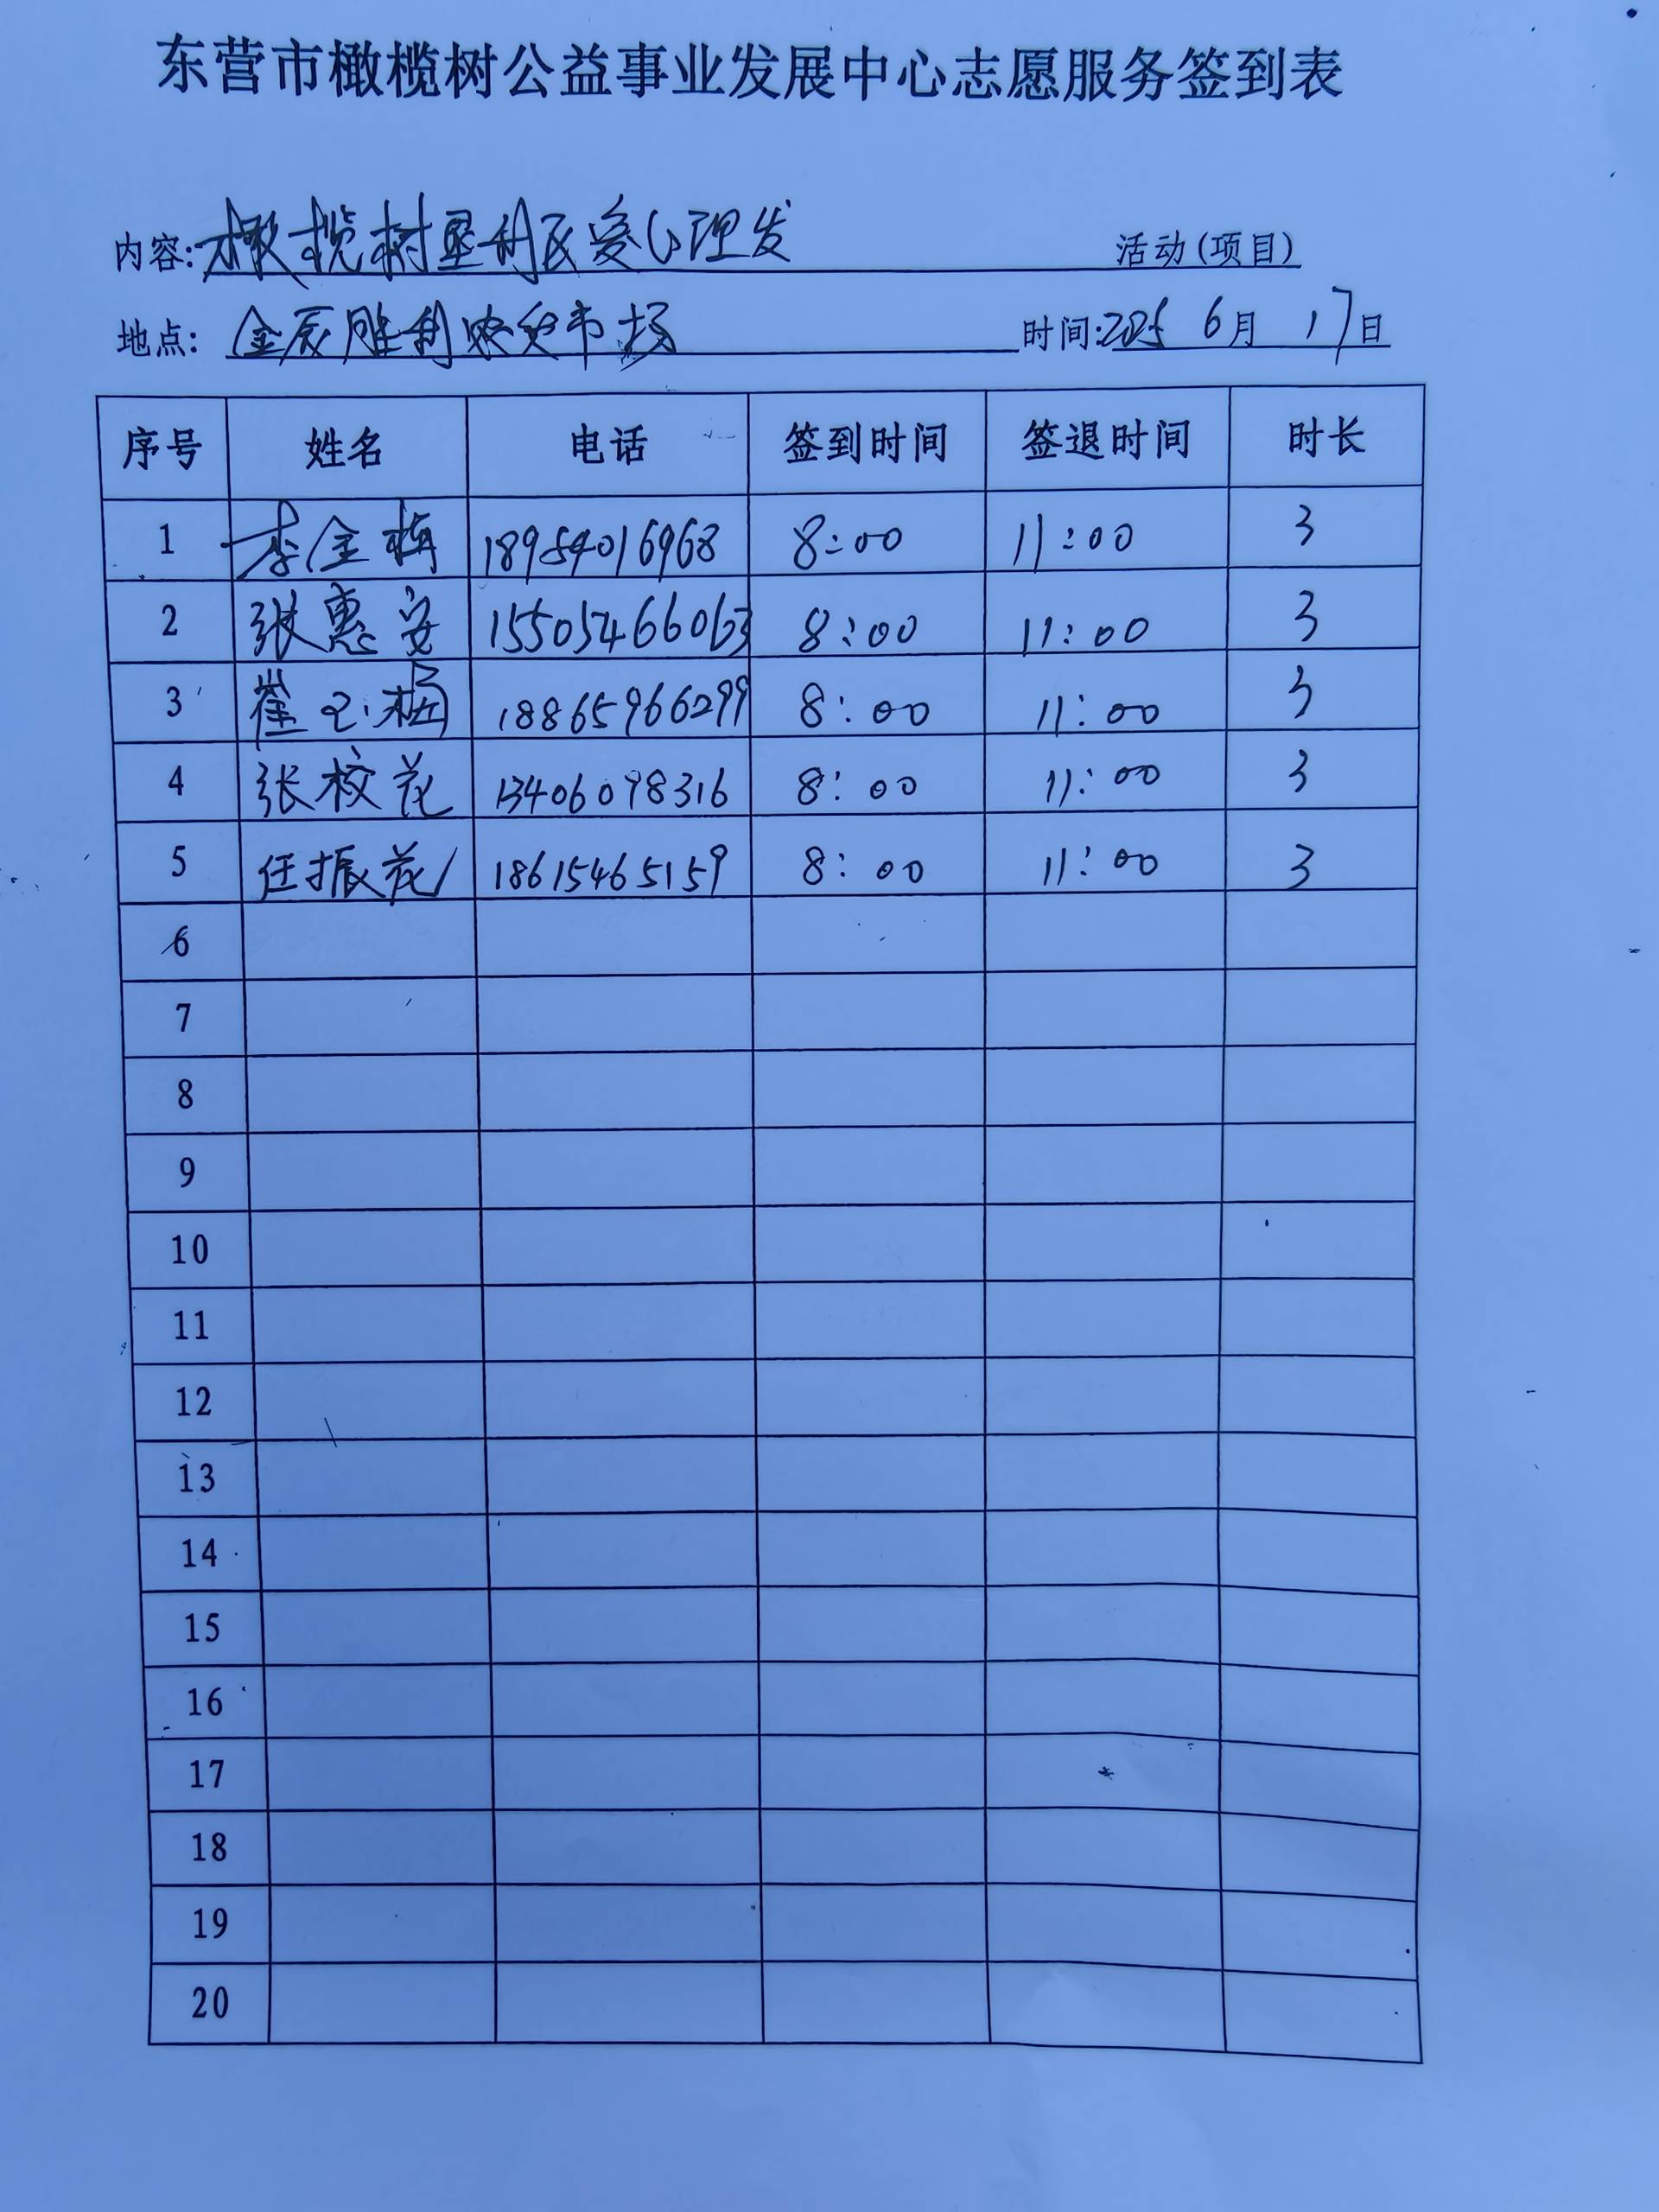 东营市橄榄树公益事业发展中心志愿服务签到表
内容: 橄榄树垦利区爱心理发 活动(项目)
地点: 金辰胜利农贸市场 时间:2025 6月 17日
序号 姓名 电话 签到时间 签退时间 时长
1 李金梅 18954016968 8:00 11:00 3
2 张惠安 15505466063 8:00 11:00 3
3 崔玉梅 18865966299 8:00 11:00 3
4 张校花 13406098316 8:00 11:00 3
5 任振花 18615465159 8:00 11:00 3
6
7
8
9
10
11
12
13
14
15
16
17
18
19
20